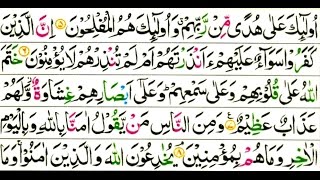 اُولٰٓئِكَ عَلٰى هُدًى مِّنْ رَّبِّهِمْ وَاُولٰٓئِكَ هُمُ الْمُفْلِحُوْنَ ۝۵ اِنَّ الَّذِيْنَ
كَفَرُوْا سَوَآءٌ عَلَيْهِمْ ءَاَنْذَرْتَهُمْ اَمْ لَمْ تُنْذِرْهُمْ لَا يُؤْمِنُوْنَ ۝۶ خَتَمَ
اللّٰهُ عَلٰى قُلُوْبِهِمْ وَعَلٰى سَمْعِهِمْ وَعَلٰٓى اَبْصَارِهِمْ غِشَاوَةٌ وَّلَهُمْ
عَذَابٌ عَظِيْمٌ ۝۷ وَمِنَ النَّاسِ مَنْ يَّقُوْلُ اٰمَنَّا بِاللّٰهِ وَبِالْيَوْمِ
الْاٰخِرِ وَمَا هُمْ بِمُؤْمِنِيْنَ ۝۸ يُخٰدِعُوْنَ اللّٰهَ وَالَّذِيْنَ اٰمَنُوْا وَمَا